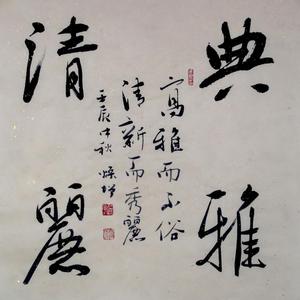 典雅
清麗
寫雅而不俗
清新而秀麗
壬辰中秋